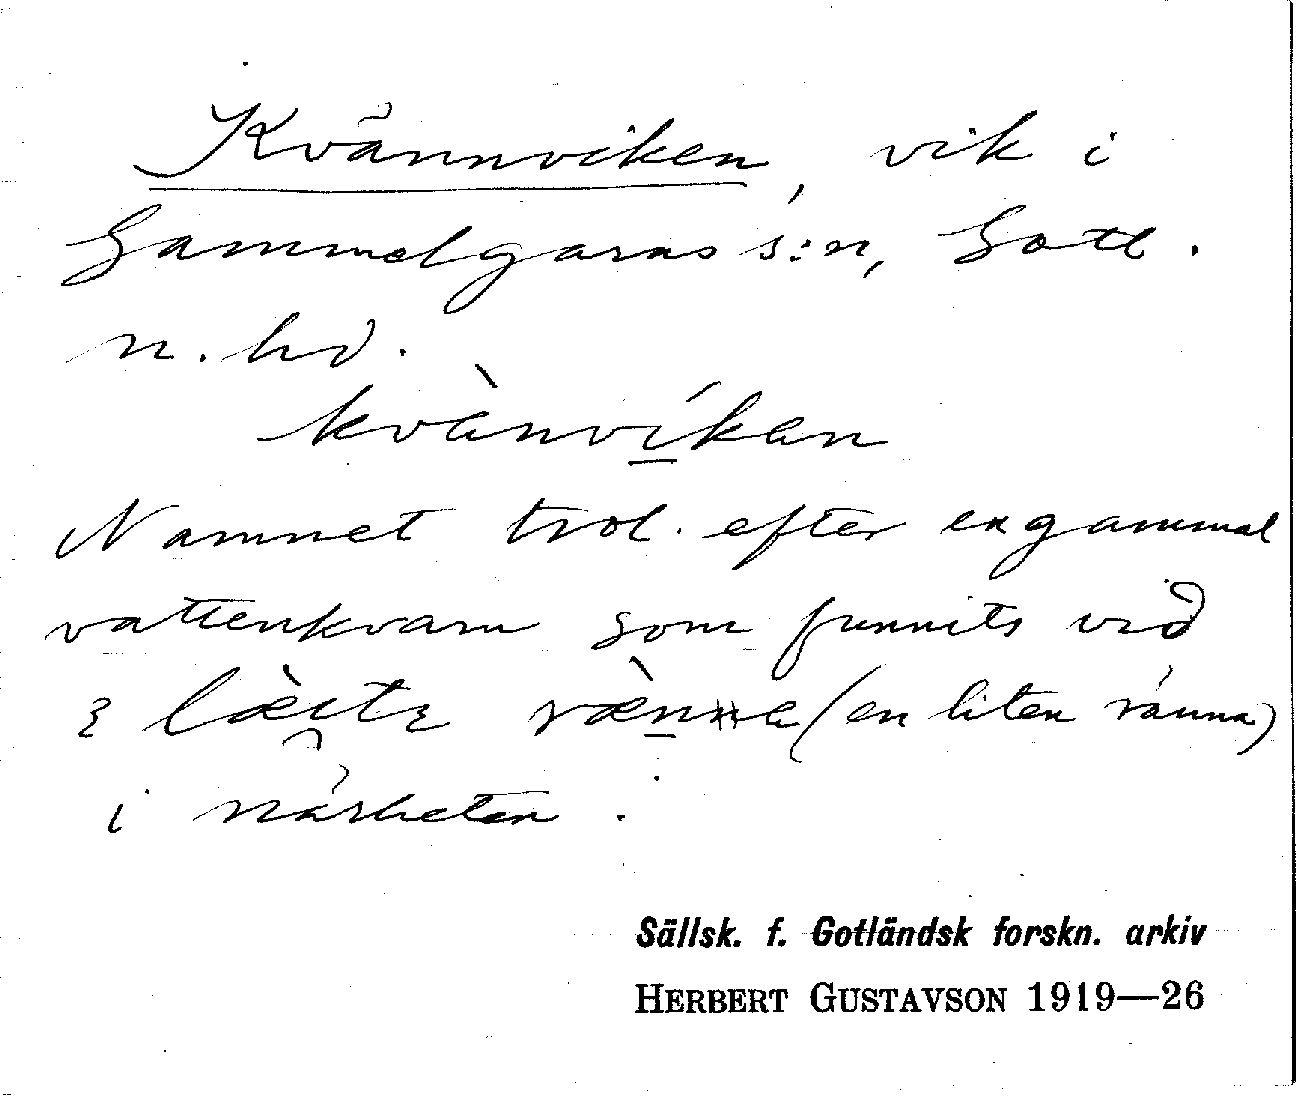 Kvännviken, vik i
Gammelgarns s:n, Gotl.
n. hd.
kvànvíkan
Namnet trol. efter en gammal
vattenkvarn som funnits vid
(en liten ränna)
i närheten.
Sällsk. f. Gotländsk forskn. arkiv
HERBERT GUSTAVSON 1919—26